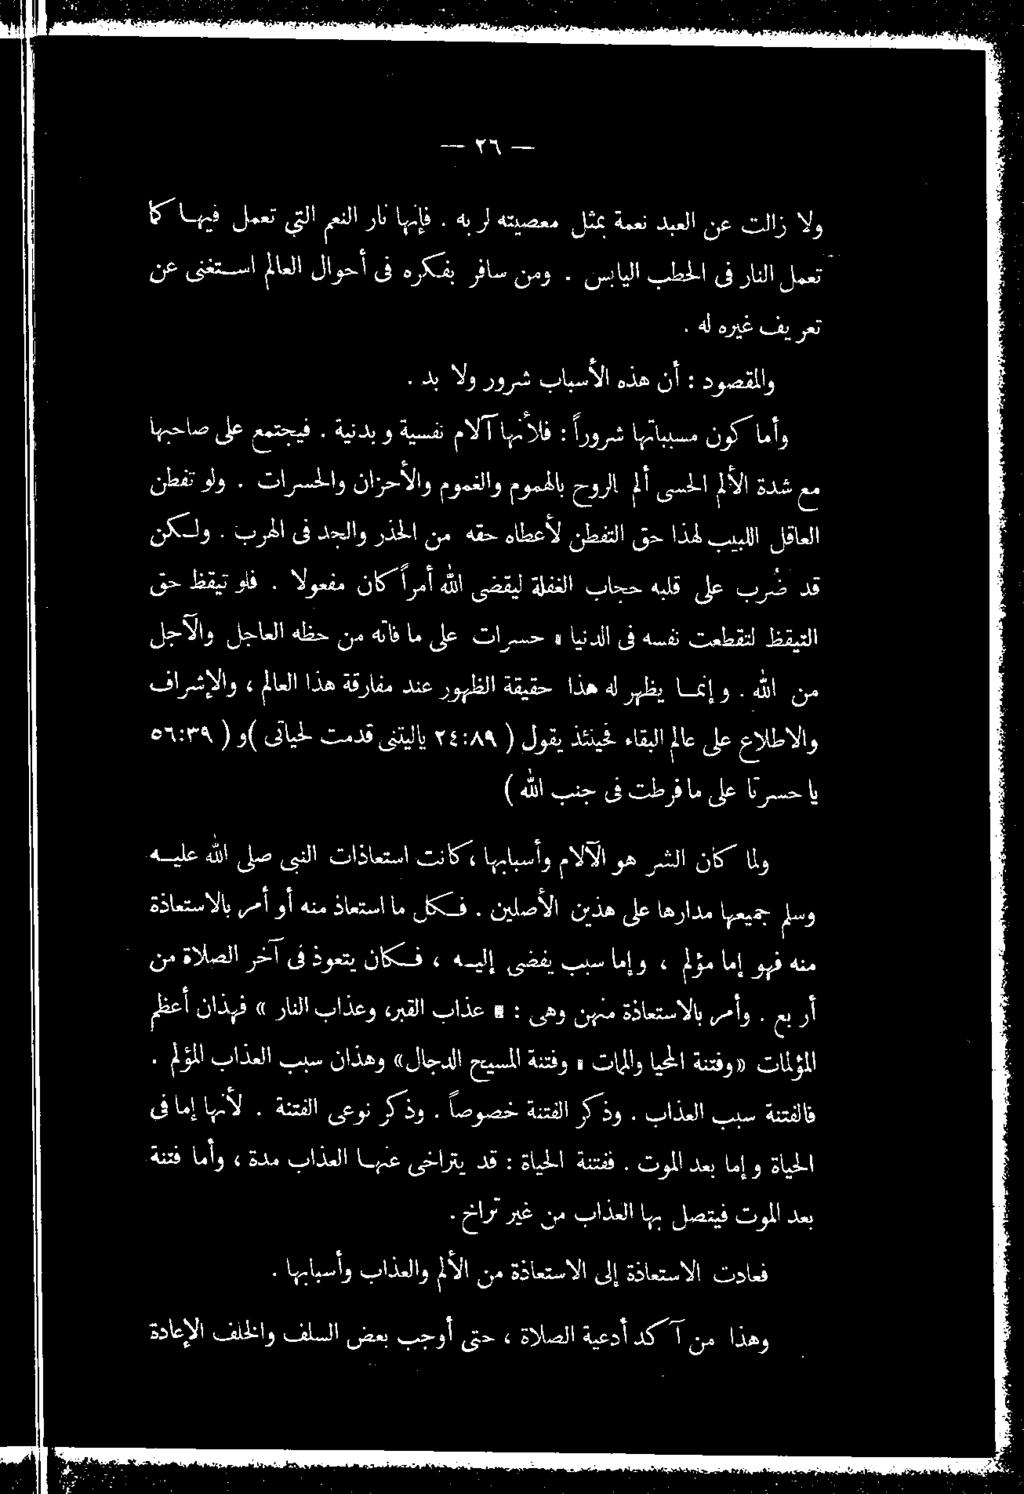 — ٢٦ —
ولا زالت عن العبد نعمة بمثل معصيته لربه . فإنها نار النعم التي تعمل فيها كما
تعمل النار فى الحطب اليابس . ومن سافر بفكره فى أحوال العالم استغنى عن
تعريف غيره له .
والمقصود : أن هذه الأسباب شرور ولا بد .
وأما كون مسبباتها شروراً : فلأنها آلام نفسية وبدنية . فيجتمع على صاحبها
مع شدة الألم الحسى ألم الروح بالهموم والغموم والأحزان والحسرات . ولو تفطن
العاقل اللبيب لهذا حق التفطن لأعطاه حقه من الحذر والجد فى الهرب . ولكن
قد ضُرب على قلبه حجاب الغفلة ليقضى الله أمراً كان مفعولا . فلو تيقظ حق
التيقظ لتقطعت نفسه فى الدنيا » حسرات على ما فاته من حظه العاجل والآجل
من الله . وإنما يظهر له هذا حقيقة الظهور عند مفارقة هذا العالم ، والإشراف
والاطلاع على عالم البقاء فحينئذ يقول ( ٨٩:٢٤ ياليتنى قدمت لحياتى ) و ( ٣٩:٥٦
يا حسرتا على ما فرطت فى جنب الله )
ولما كان الشر هو الآلام وأسبابها ، كانت استعاذات النبى صلى الله عليه
وسلم جميعها مدارها على هذين الأصلين . فكل ما استعاذ منه أو أمر بالاستعاذة
منه فهو إما مؤلم ، وإما سبب يفضى إليه ، فكان يتعوذ فى آخر الصلاة من
أربع . وأمر بالاستعاذة منهن وهى : « عذاب القبر ، وعذاب النار » فهذان أعظم
المؤلمات « وفتنة المحيا والممات » وفتنة المسيح الدجال » وهذان سبب العذاب المؤلم .
فالفتنة سبب العذاب . وذكر الفتنة خصوصاً . وذكر نوعى الفتنة . لأنها إما فى
الحياة وإما بعد الموت . ففتنة الحياة : قد يتراخى عنها العذاب مدة ، وأما فتنة
بعد الموت فيتصل بها العذاب من غير تراخ .
فعادت الاستعاذة إلى الاستعاذة من الألم والعذاب وأسبابها .
وهذا من آكد أدعية الصلاة ، حتى أوجب بعض السلف والخلف الإعادة